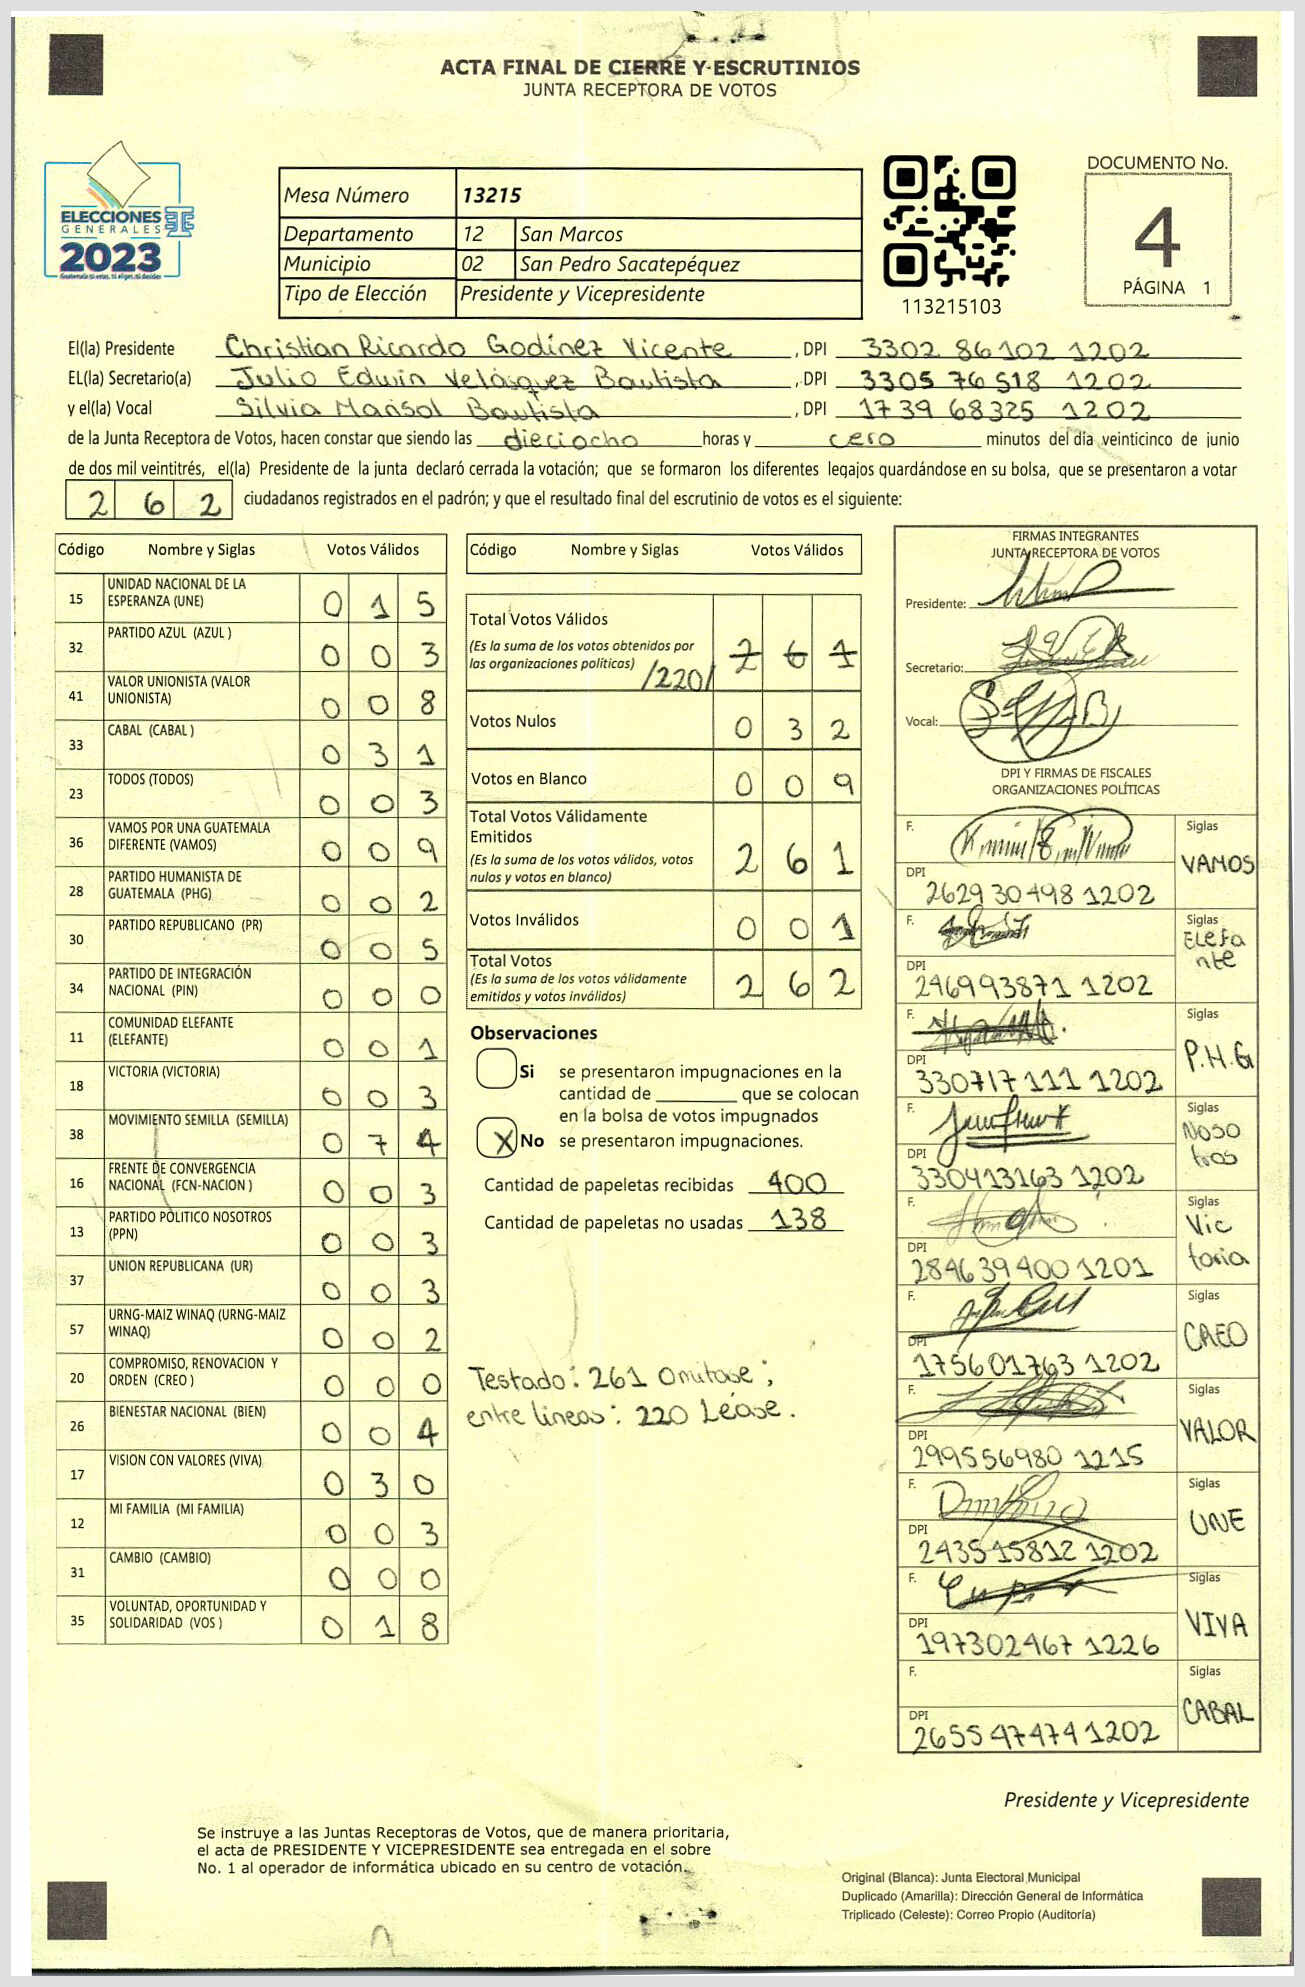 ACTA FINAL DE CIERRE Y ESCRUTINIOS
JUNTA RECEPTORA DE VOTOS
ELECCIONES
GENERALES
2023
Guatemala tú votas, tú eliges, tú decides
Mesa Número 13215
Departamento 12 San Marcos
Municipio 02 San Pedro Sacatepéquez
Tipo de Elección Presidente y Vicepresidente
113215103
DOCUMENTO No.
4
PÁGINA 1
El(la) Presidente Christian Ricardo Godínez Vicente , DPI 3302 86102 1202
EL(la) Secretario(a) Julio Edwin Velásquez Bautista , DPI 3305 76518 1202
y el(la) Vocal Silvia Marisol Bautista , DPI 1739 68325 1202
de la Junta Receptora de Votos, hacen constar que siendo las dieciocho horas y cero minutos del día veinticinco de junio
de dos mil veintitrés, el(la) Presidente de la junta declaró cerrada la votación; que se formaron los diferentes legajos guardándose en su bolsa, que se presentaron a votar
2 6 2 ciudadanos registrados en el padrón; y que el resultado final del escrutinio de votos es el siguiente:
Código Nombre y Siglas Votos Válidos
15 UNIDAD NACIONAL DE LA
ESPERANZA (UNE) 0 1 5
32 PARTIDO AZUL (AZUL ) 0 0 3
41 VALOR UNIONISTA (VALOR
UNIONISTA) 0 0 8
33 CABAL (CABAL ) 0 3 1
23 TODOS (TODOS) 0 0 3
36 VAMOS POR UNA GUATEMALA
DIFERENTE (VAMOS) 0 0 9
28 PARTIDO HUMANISTA DE
GUATEMALA (PHG) 0 0 2
30 PARTIDO REPUBLICANO (PR) 0 0 5
34 PARTIDO DE INTEGRACIÓN
NACIONAL (PIN) 0 0 0
11 COMUNIDAD ELEFANTE
(ELEFANTE) 0 0 1
18 VICTORIA (VICTORIA) 0 0 3
38 MOVIMIENTO SEMILLA (SEMILLA) 0 7 4
16 FRENTE DE CONVERGENCIA
NACIONAL (FCN-NACION ) 0 0 3
13 PARTIDO POLITICO NOSOTROS
(PPN) 0 0 3
37 UNION REPUBLICANA (UR) 0 0 3
57 URNG-MAIZ WINAQ (URNG-MAIZ
WINAQ) 0 0 2
20 COMPROMISO, RENOVACION Y
ORDEN (CREO ) 0 0 0
26 BIENESTAR NACIONAL (BIEN) 0 0 4
17 VISION CON VALORES (VIVA) 0 3 0
12 MI FAMILIA (MI FAMILIA) 0 0 3
31 CAMBIO (CAMBIO) 0 0 0
35 VOLUNTAD, OPORTUNIDAD Y
SOLIDARIDAD (VOS ) 0 1 8
Código Nombre y Siglas Votos Válidos
Total Votos Válidos
(Es la suma de los votos obtenidos por
las organizaciones políticas) /220/ 2 6 1
Votos Nulos 0 3 2
Votos en Blanco 0 0 9
Total Votos Válidamente
Emitidos
(Es la suma de los votos válidos, votos
nulos y votos en blanco) 2 6 1
Votos Inválidos 0 0 1
Total Votos
(Es la suma de los votos válidamente
emitidos y votos inválidos) 2 6 2
Observaciones
Si se presentaron impugnaciones en la
cantidad de ________ que se colocan
en la bolsa de votos impugnados
X No se presentaron impugnaciones.
Cantidad de papeletas recibidas 400
Cantidad de papeletas no usadas 138
Testado: 261 Omitase;
entre lineas: 220 Léase.
FIRMAS INTEGRANTES
JUNTA RECEPTORA DE VOTOS
Presidente:
Secretario:
Vocal:
DPI Y FIRMAS DE FISCALES
ORGANIZACIONES POLÍTICAS
F. Siglas
VAMOS
DPI
2629 30498 1202
F. Siglas
Elefa
nte
DPI
246993871 1202
F. Siglas
P.H.G
DPI
330717111 1202
F. Siglas
Noso
tros
DPI
330413163 1202
F. Siglas
Vic
toria
DPI
284639400 1201
F. Siglas
CREO
DPI
175601763 1202
F. Siglas
VALOR
DPI
299556980 1215
F. Siglas
UNE
DPI
243515812 1202
F. Siglas
VIVA
DPI
197302467 1226
F. Siglas
CABAL
DPI
265547474 1202
Presidente y Vicepresidente
Se instruye a las Juntas Receptoras de Votos, que de manera prioritaria,
el acta de PRESIDENTE Y VICEPRESIDENTE sea entregada en el sobre
No. 1 al operador de informática ubicado en su centro de votación.
Original (Blanca): Junta Electoral Municipal
Duplicado (Amarilla): Dirección General de Informática
Triplicado (Celeste): Correo Propio (Auditoría)